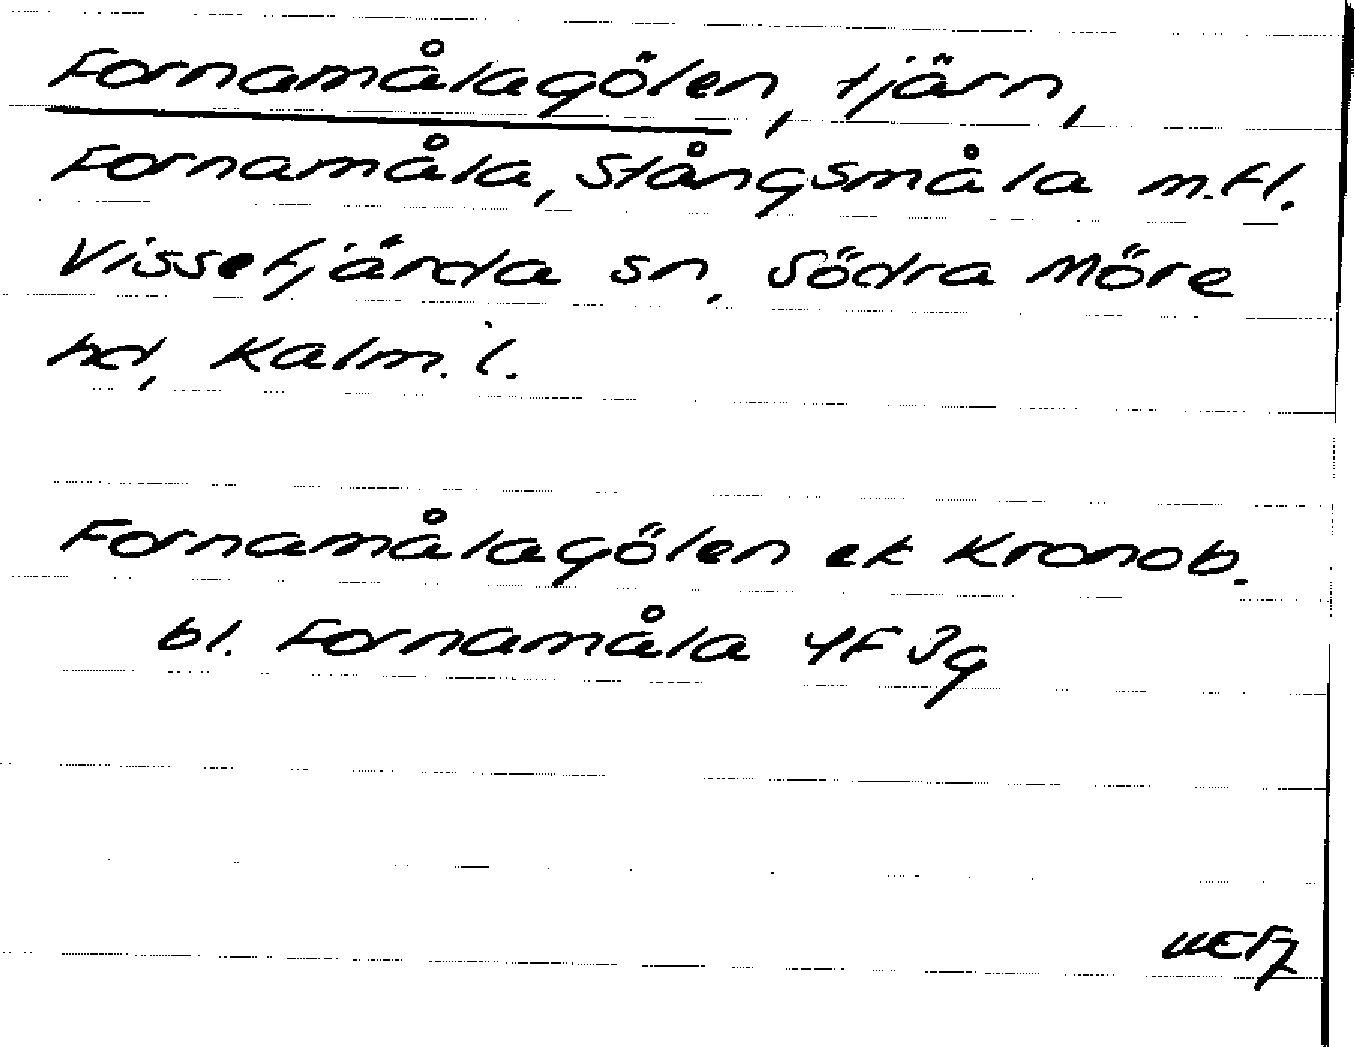 Fornamålagölen, tjärn,
Fornamåla, Stångsmåla m.fl.
Vissefjärda sn, Södra Möre
hd, Kalm. l.
Fornamålagölen ek Kronob.
bl. Fornamåla 4F 3g